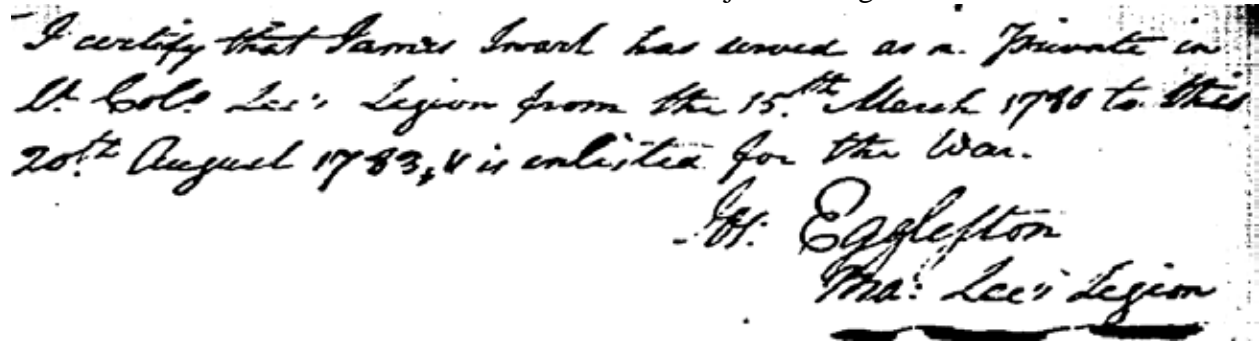 I certify that James Swart has served as a Private in
Lt. Colo. Lee's Legion from the 15.th March 1780 to this
20.th August 1783, & is enlisted for the War.
Jos: Egglefton
Ma: Lee's Legion